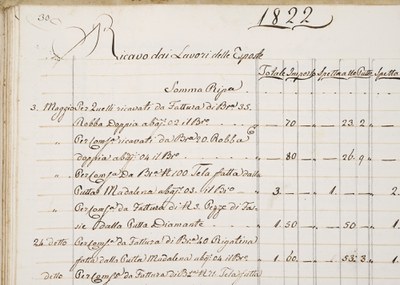 30.
1822
Ricavo dai Lavori delle Esposte
Totale Importo Spetta alle Putte Spetta
Somma Rip.a
3. Maggio Per Quelli ricavati da Fattura di Bra. 35.
Robba Doppia a baj. 02 il Bro 70 23.2
" Per Comso ricavati da Bra 20. Robba
doppia a baj. 04 il Bro 80 26.9
" Per Comso Da Bra N. 100 Tela fatta dalla
Putta Madalena a baj. 03. il Bro 3. 1. 2.
" Per Comso da Fattura di N. 3. Pezze di Fas-
sie dalla Putta Diamante 1.50 50 1.
24. detto Per Comso da Fattura di Bra 40 Rigatina
fatta dalla Putta Madalena a baj. 04 il Bro 1.60. 53.3 1.
detto Per Comso da Fattura di Bra N. 71. Tela fatta